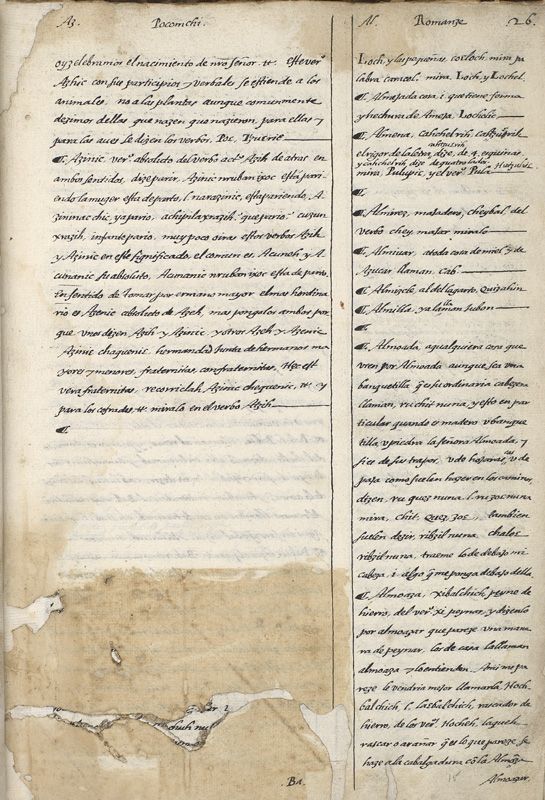 Az. Pocomchi.
oyzelebramos el nacimiento de nrõ señor. tt. este verº
Azhic con sus participios y verbales se estiende a los
animales. no a las plantas aunque comunmente
dezimos dellas que nazen que nazieron, para ellas y
para las aues se dizen los verbos, Poc,
¶. Azinic. verº absoluto del verbo actº Azeh de atras en
ambos sentidos, dize parir, Azinic nruban ixoc esta pari-
endo la muger esta de parto, l, nanazinic, esta pariendo, x
zinmac chic, ya pario. achpila xnazih. que pario.
xnazih, infanto pario, muy poco oiras estos verbos Azih
y Azinic en este significado. el comun es. Acuneh, y A
cunanic su absoluto, Acunanic nruban ixoc esta de parto.
En sentido de tomar por ermano mayor el mas hordina
rio es, Azenic absoluto de Azeh, mas pongalos ambos por
que vnos dizen Azih y Azinic, y otros Azeh y Azenic
Azinic chaquenic, hermandad junta de hermanos ma
yores y menores, fraternitas, confraternitas, Hęc est
vera fraternitas, re Azinic chaquenic, tt. y
para los cofrades tt. miralo en el verbo Azih
¶
Ba.
Al. Romanze 26.
Loch, y las pequeñas, cocloch, mira pa
labra caracol. mira, Loch, y Lochel.
¶. Almejada cosa i. que tiene forma
y hechura de Almeja, Locholic
¶. Almena, cahchelrih,
el rigor de la letra, dize, de 4. esquinas,
dize de quatro lados,
mira, Palupic, y el verº Pula
¶. Almirez, majadero, cheybal. del
verbo chey, majar miralo
¶. Almiuar, a toda cosa de miel, y de
Azucar llaman, cab.
¶. Almizcle, al del lagarto, Quizahin
¶. Almilla, ya la llamã Jubon
¶.
¶. Almoada, a qualquiera cosa que
vren por Almoada aunque sea vna
banquetilla, q̃ es su ordinaria cabezera
llaman, ru chit nuna, y esto en par
ticular quando es madero v banque
tilla, v piedra la señora Almoada, y
si es de sus trapos, v de hojarascas, v de
paja como suelen hazer en los caminos,
dizen, ru quez nuna. l. ruzoc nuna
mira, Chit, Quez, Zoc, tambien
suelen dezir, ribzil nuna, chaloc
ribzil nuna, traeme lo de debajo mi
cabeza, i. algo q̃ me ponga debajo della
¶. Almoaza, xibalchich, peyne de
hierro, del verº, xi peynar, y dizenlo
por almoazar que pareze vna mane
ra de peynar, los de casa la llaman
almoaza y lo entienden. A mi me pa
reze le vendria mejor llamarla, Hoch
balchich, l, Iasbalchich, rascador de
hierro, de los verº, Hocheh,
rascar o arañar q̃ es lo que pareze, se
haze a la cabalgadura cõ la Almoãza
15 Almoazar.